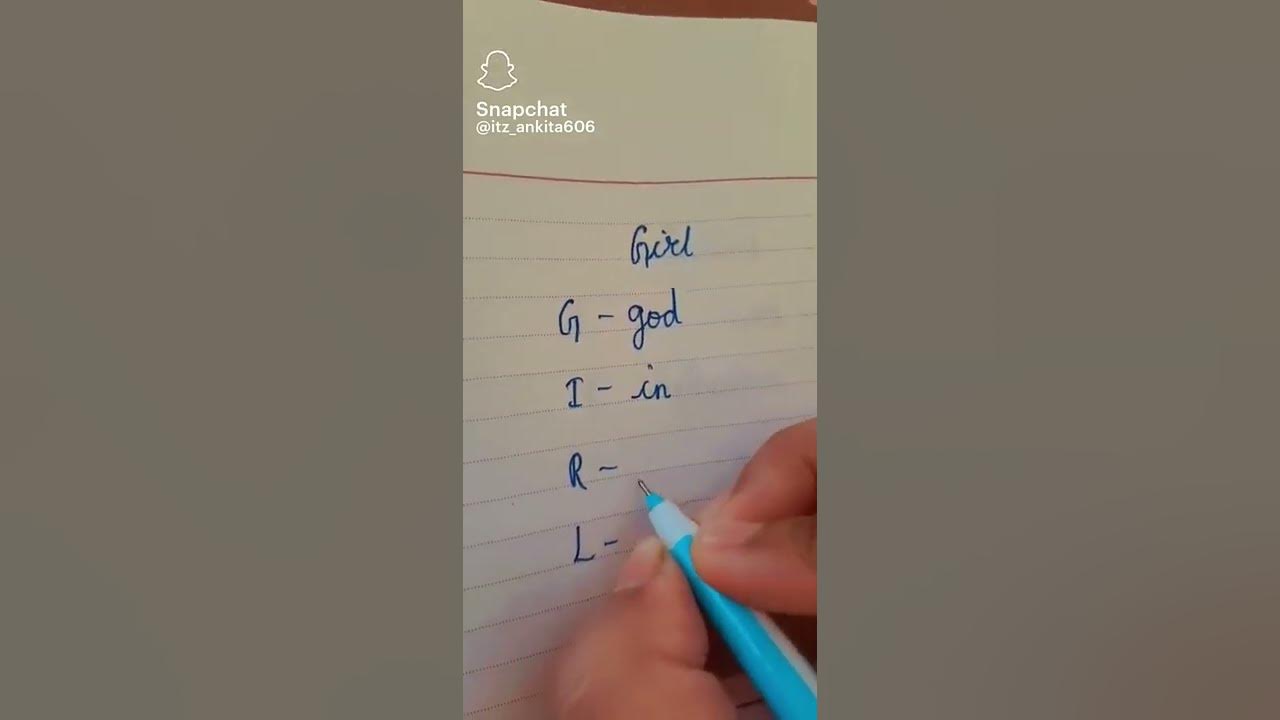 Snapchat
@itz_ankita606
Girl
G - god
I - in
R -
L -